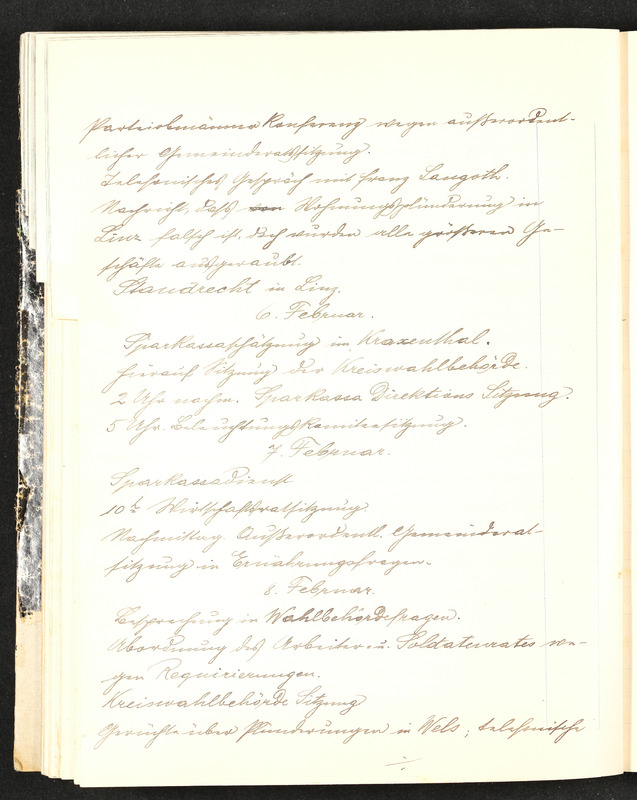 Parteiobmänner Konferenz wegen außerordent-
licher Gemeinderatssitzung.
Telefonisches Gespräch mit Franz Langoth.
Nachricht, daß von Wohnungsplünderung in
Linz falsch ist, doch wurden alle größeren Ge-
schäfte ausgeraubt.
Standrecht in Linz.
6. Februar.
Sparkassaschätzung in Kraxenthal.
Hierauf Sitzung der Kreiswahlbehörde.
2 Uhr nachm. Sparkassa Direktions Sitzung.
5 Uhr. Beleuchtungskomiteesitzung.
7. Februar.
Sparkassadienst
10h Wirtschaftsratsitzung
Nachmittag Außerordentl. Gemeinderat-
sitzung in Ernährungsfragen.
8. Februar.
Besprechung in Wahlbehördefragen.
Abordnung des Arbeiter- u. Soldatenrates we-
gen Requirierungen.
Kreiswahlbehörde Sitzung
Gerüchte über Plünderungen in Wels, telefonische